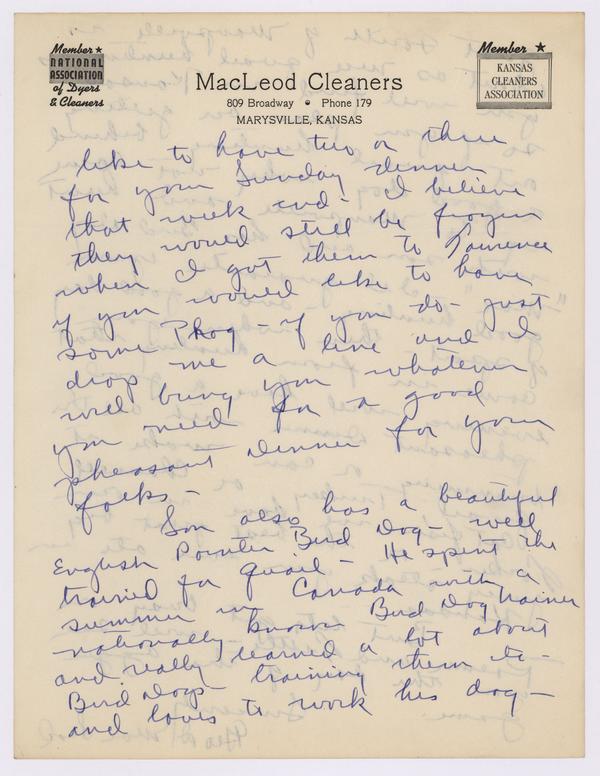 Member ★
NATIONAL
ASSOCIATION
of Dyers
& Cleaners
MacLeod Cleaners
809 Broadway • Phone 179
MARYSVILLE, KANSAS
Member ★
KANSAS
CLEANERS
ASSOCIATION
like to have two or three
for your Sunday dinner
that week end - I believe
they would still be frozen
when I got them to Lawrence
if you would like to have
some Phog - if you do - just
drop me a line and I
will bring you whatever
you need for a good
pheasant dinner for your
folks -
Son also has a beautiful
English Pointer Bird Dog - well
trained for quail - He spent the
summer in Canada with a
nationally known Bird Dog trainer
and really learned a lot about
Bird Dogs - training them etc -
and loves to work his dog -